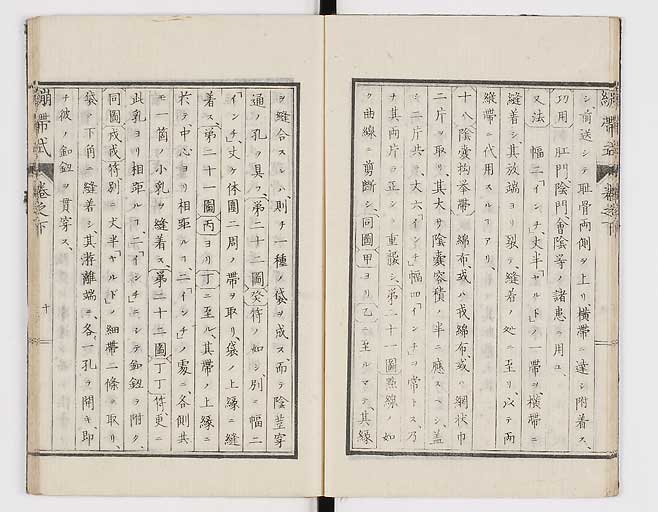 シ前送シテ耻骨両側ヲ上リ、横帯ニ達シ附着ス、
功用 肛門、陰門、會陰等ノ諸患ニ用ユ、
又法 幅二「インチ」、丈半「ヤルド」ノ一帯ヲ横帯ニ
縫着シ、其放端ヨリ裂テ縫着ノ処ニ至リ、以テ両
縦帯ニ代用スルヿアリ、
十八陰嚢抅挙帯 綿布或ハ莪綿布、或ハ網状巾
二片ヲ取リ、其大サ陰嚢容積ノ半ニ應スベシ、盖
シ二片共ニ丈六「インチ」幅四「インチ」ヲ常トス、乃
チ其両片ヲ正シク重襲シ、第二十一圖點線ノ如
ク曲線ニ剪断シ、同圖甲ヨリ乙ニ至ルマテ、其縁
ヲ縫合スレハ則チ一種ノ袋ヲ成ス、而テ陰茎穿
通ノ孔ヲ具フ、第二十二圖癸符ノ如シ、別ニ幅二
「インチ」、丈ケ体囲二周ノ帯ヲ取リ、袋ノ上縁ニ縫
着ス、第二十一圖丙ヨリ丁ニ至ル、其帯ノ上縁ニ
於テ中心ヨリ相距ルヿ、二「インチ」ノ處ニ各側共
モ一箇ノ小乳ヲ縫着ス、第二十二圖丁丁符更ニ
此乳ヨリ相距ルヿ、二「インチ」ニシテ釦鈕ヲ附ク、
同圖戊戊符別ニ丈半「ヤルド」ノ細帯二條ヲ取リ、
袋ノ下角ニ縫着シ、其游離端ニ、各一孔ヲ開キ、即
チ彼ノ釦鈕ヲ貫穿ス、
繃帯式 巻之下
十